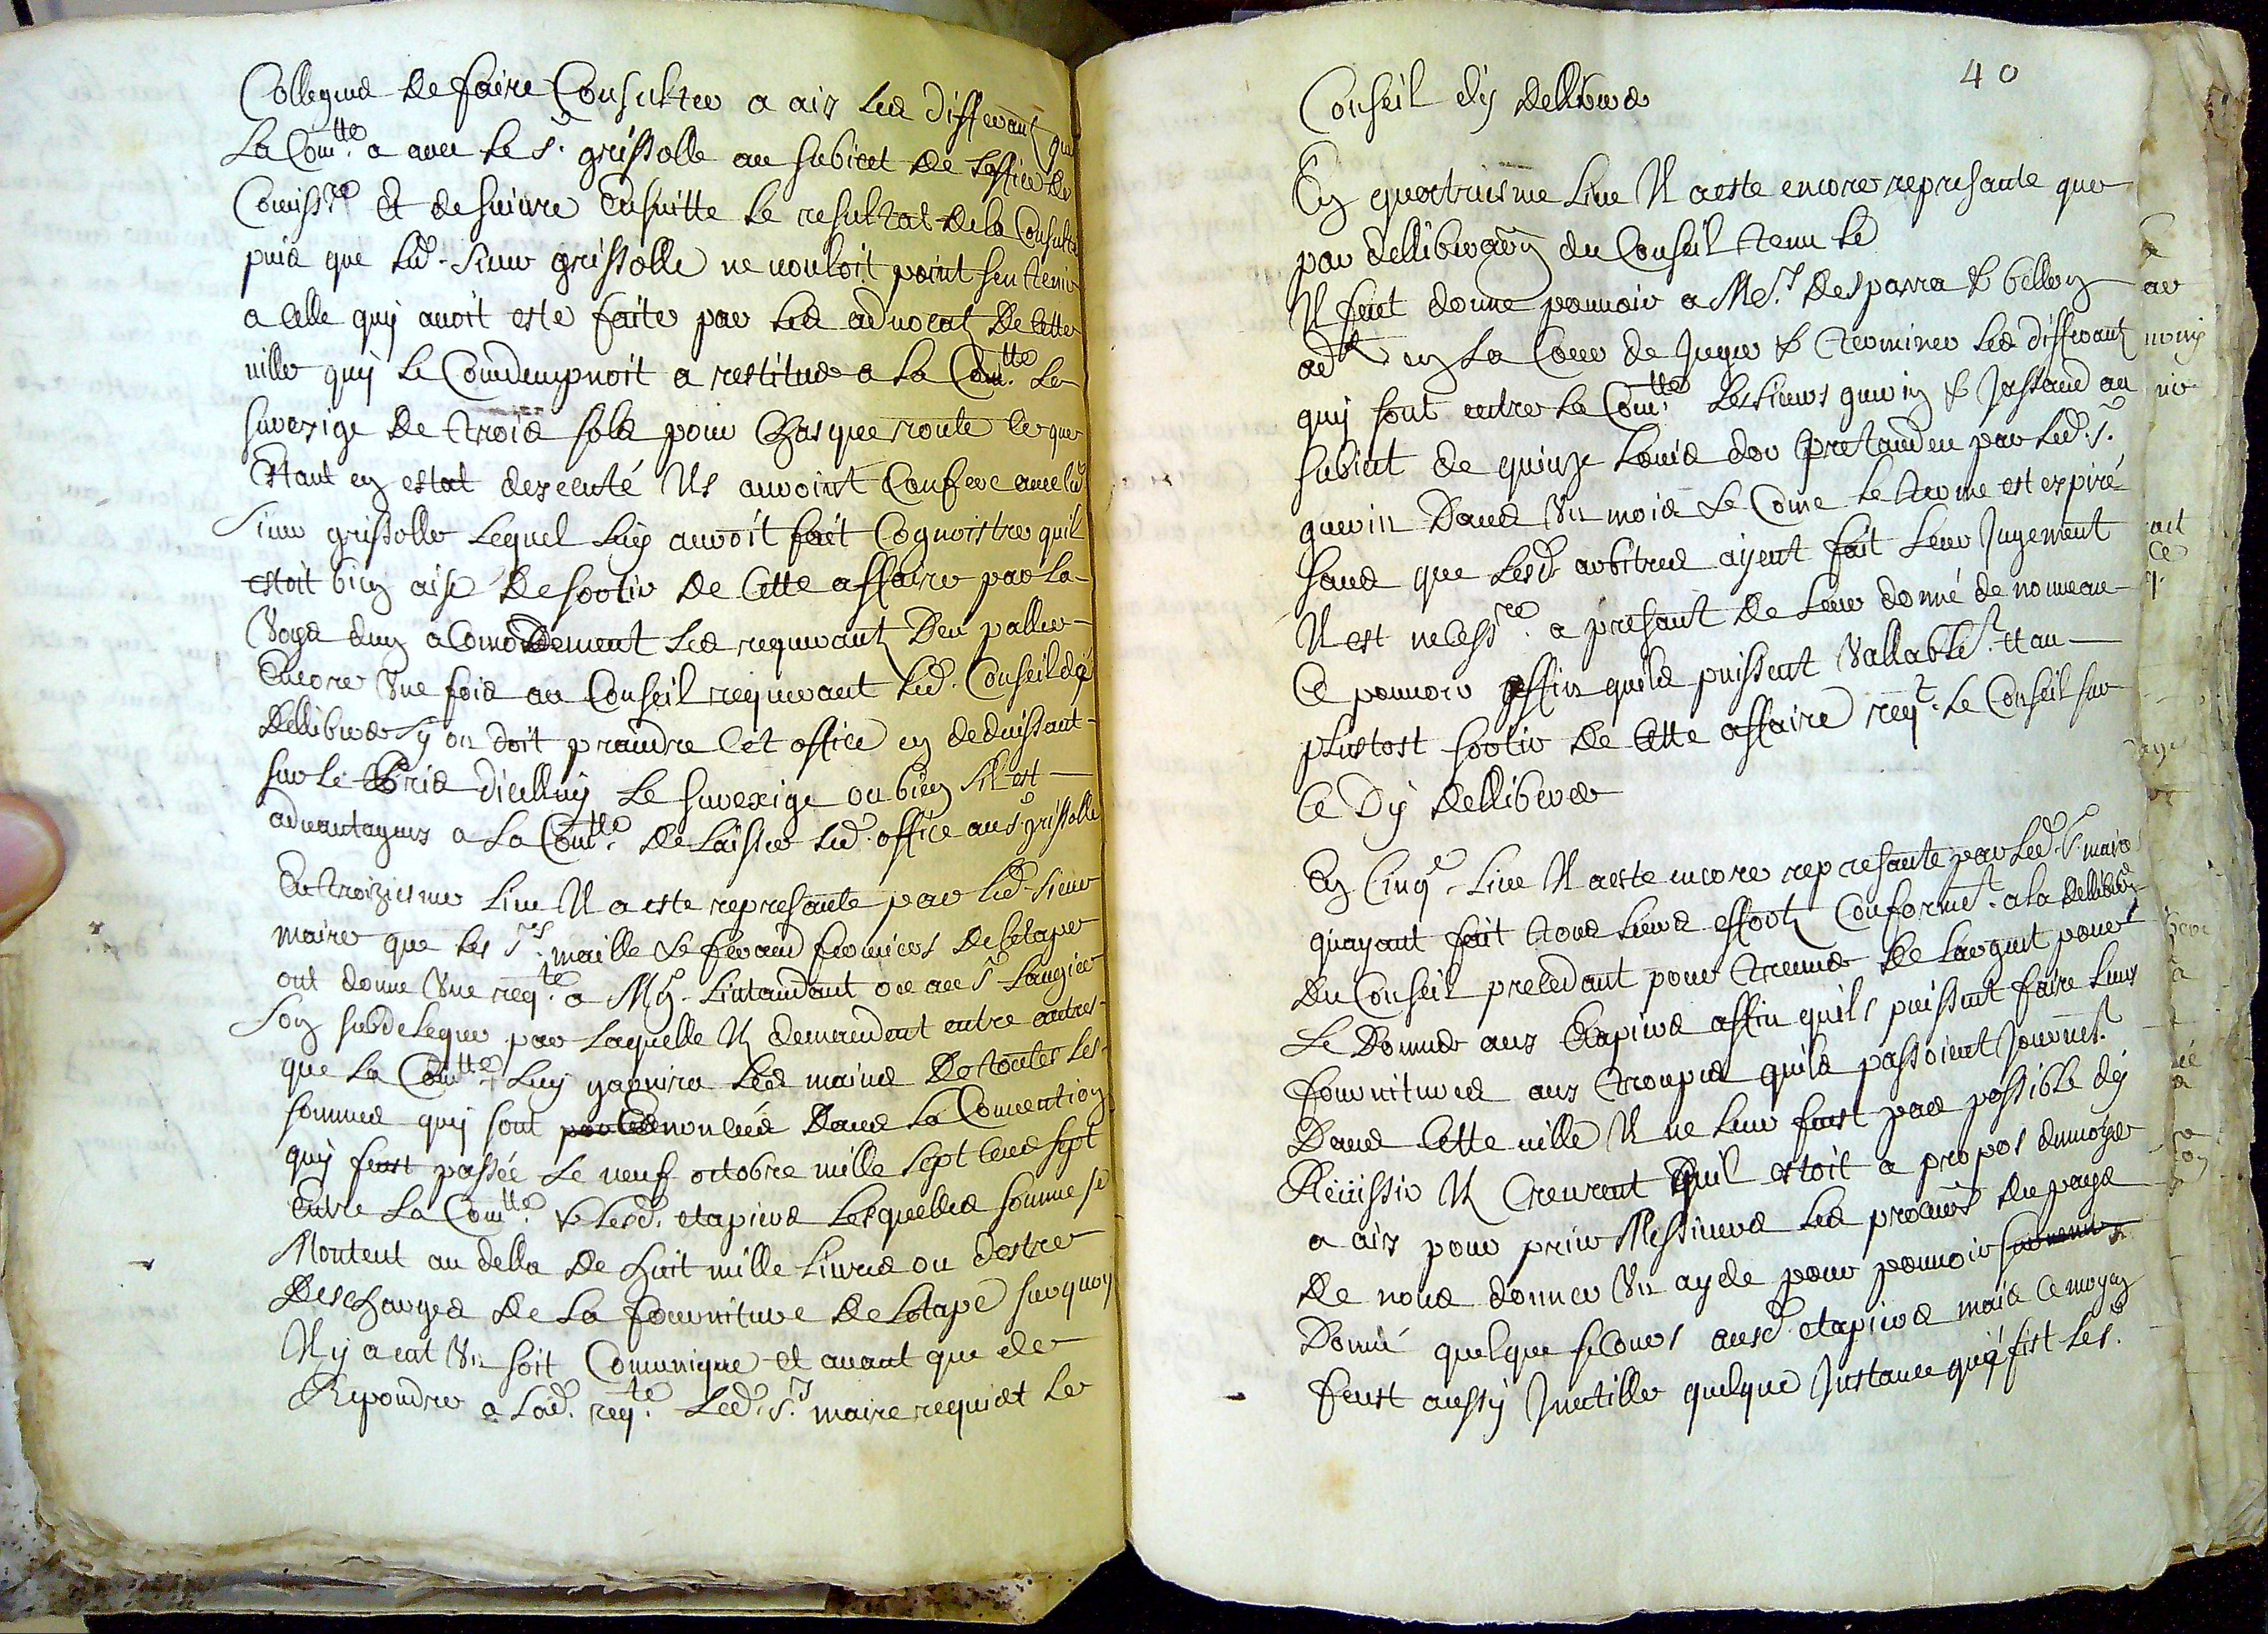 Collegues de faire Consulter a aix les differants que
La Com.tte a avec le s.r grissolle au subiect de Loffice de
Comiss.re Et de suivre Ensuitte le resultat de la Consulte
puis que led. sieur grissolle ne vouloit point sen tenir
a Celle quy avoit este faite par les advocats de Cette
ville quy Le Condempnoit a restitues a La Com.tte Le
surexige de trois sols pour Chasque route Ce que
Estant en estat dexecuté Ils auroint Confere avec led.
sieur grissolle Lequel luy auroit fait Cognoistre quil
estoit bien aise de sortir de Cette affaire par La
Voye dun acomodement Les requerant den parler
Encore Une fois au Conseil requerant led. Conseil dy
deliberer sy on doit prandre Cet office en deduissant
sur le Prix dicelluy le surexige ou bien sil est
advantageux a La Com.tte de Laisser led. office au s.r grissolle
En troiziesme Lieu Il a este represante par led. sieur
maire que les s.rs maille & feraud fermiers de Letape
ont donne Une req.te a Mg.r Lintandant ou au s.r Laugier
son subdelegue par Laquelle Ils demandent entre autres
que La Com.tte Luy garnira Les mains de toutes Les
sommes quy sont enoncées dans La Convention
quy feust passée Le neuf octobre mille sept cens sept
Entre La Com.tte & Lesd. etapiers Lesquelles somme se
Montent au della de huit mille Livres ou destre
descharges de La fourniture de Letape sur quoy
Il y a eut Un soit Comunique et avant que de
Repondre a Lad. req.te Led. s.r maire requiert Le
40
Conseil dy delliberer
En quatruisme Lieu Il a este encore represante que
par delliberaon du Conseil tenu le
Il feut donne pouvoir a Me.rs desparra & bellon
ad.ts en La Cour de Juger & terminer Les differants
quy sont entre La Com.tte Les sieurs guerin & Jassaud au
subiect de quinze Louis dor pretanden par led. s.r
guerin dans Un mois & Come le terme est expiré
sans que Lesd. arbitres ayent fait Leur Jugement
Il est necess.re a presant de Leur donné de nouveau
Ce pouvoir affin quils puissent Vallablem.t et au
plustost sortir de Cette affaire req.t Le Conseil sur
Ce dy delliberer
En Cinq.e Lieu Il a este encore represante par Led. s.r maire
quayant fait tous Leurs efforts Conformem.t a La delliberaon
du Conseil precedant pour trouver de Largent pour
Le donner aux Etapiers affin quils puissent faire Leurs
fournitures aux troupes quils passoient Journel.t
dans Cette ville Il ne Leur feust pas possible dy
Reüissir Ils Creurent quil estoit a propos denvoyer
a aix pour prier Messieurs Les procurs du pays
de nous donner Un ayde pour pouvoir
donné quelque secours ausd. etapiers mais Ce moyen
feust aussy Inutille quelque Instance quy fist Le s.r